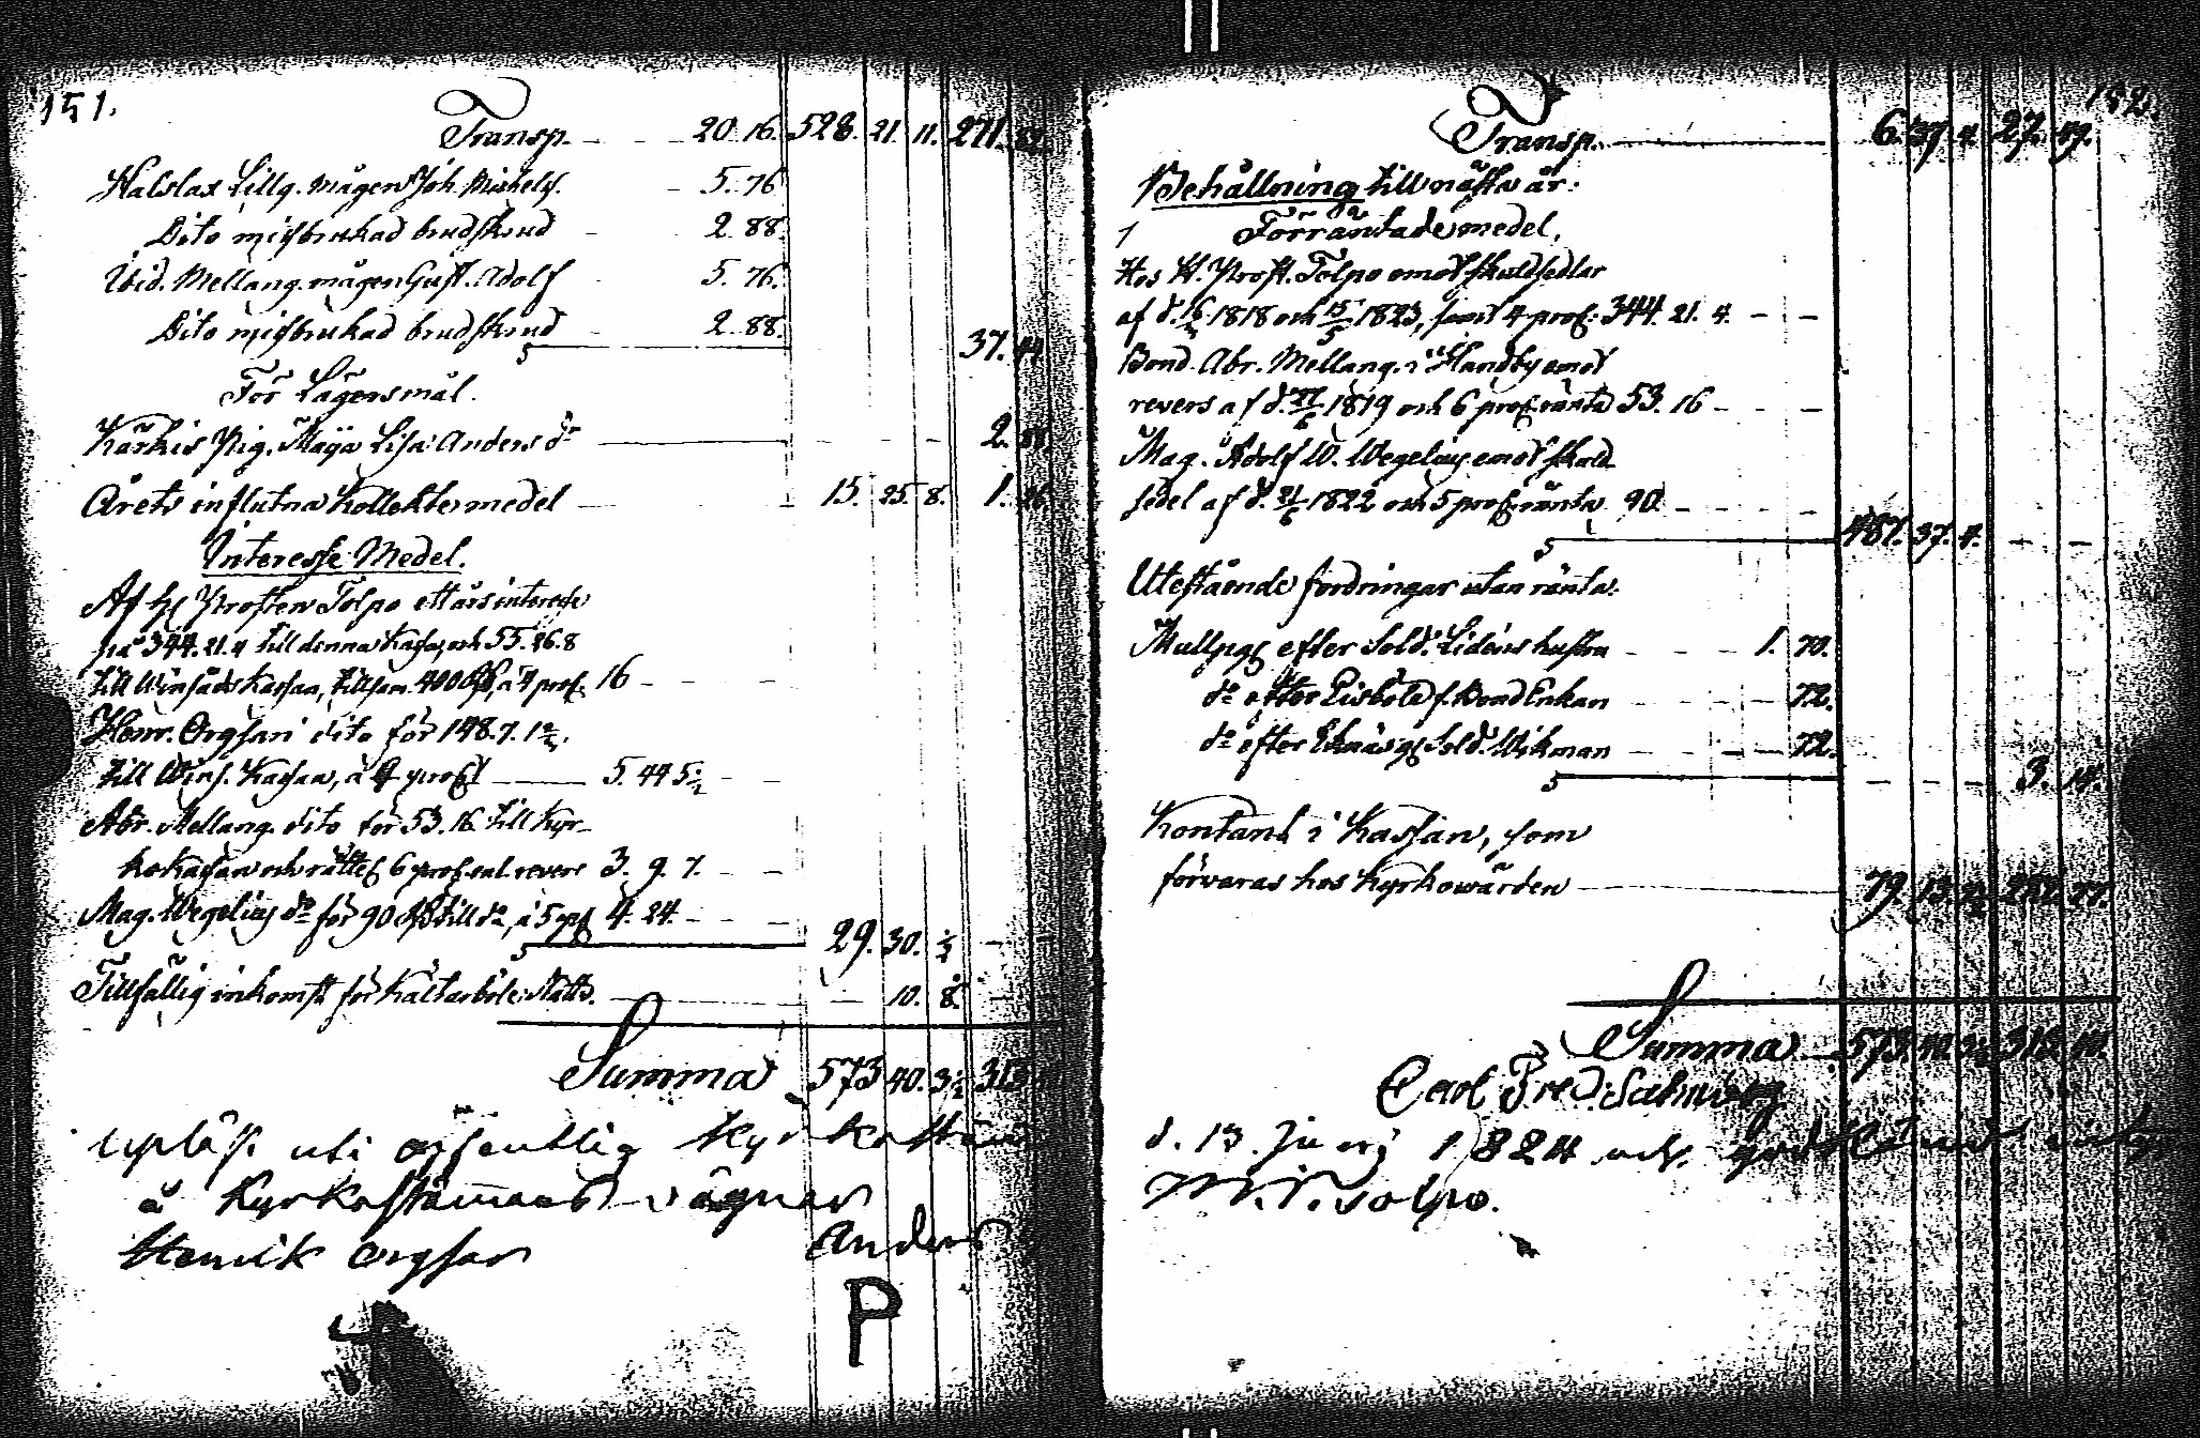 151.
Transp. 20 16. 528. 21. 11. 271.
Halslax Lillg. mågen Joh. Michelss. 5. 76
Dito missbrukad brudskrud 2 88.
Ibid. Mellang. mågen Gust. Adolf 5. 76.
Dito missbrukad brudskrud 2. 88.
37. 44
För Lägersmål.
Kärkis Pig. Maija Lisa Anders dr 2.
Årets influtna Kollektmedel 15. 25. 8. 1. 26.
Interesse Medel.
Af H Prosten Tolpo ett års interesse
på 344. 21. 4 till denna Kassa, och 55. 26. 8
till Winsads Kassan, tillsam. 400 à 4 proc. 16
Henr. Orgsari dito för 148. 7. 1½.
till Wins. Kassan, à 4 procent 5. 44 5½
Abr. Mellang. dito för 53. 16. till Kyr-
kokassan och rättes 6 proc. enl. revers 3. 9. 7.
Mag. Wegelius do för 90 till do, à 5 pc 4. 24.
29. 30. ½
Tillfällig inkomst för 10. 8.
Summa 573 40. 3½ 313
upläst uti offentlig Kyrkostäm
å Kyrkostämmans vägnar
Henrik Orgsar Anders
P
152.
Transp. 6. 37. 4. 27. 89.
Behållning till nästa år:
1 Förräntade medel.
Hos H. Prost. Tolpo emot skuldsedlar
af d. 1818 och 15/5 1823, samt 4 proc: 344. 21. 4.
Bond. Abr. Mellang. i Handby emot
revers af d. 1819 och 6 proc. ränta 53. 16
Mag. Adolf W. Wegelius emot skuld-
sedel af d. 21/6 1822 och 5 proc. ränta 90
487. 37. 4.
Utestående fordringar utan ränta:
Mullpgr efter Sold. Lidens hustru 1. 70.
do efter f. Bond Enkan 72.
do efter Sold. Wikman 72.
3. 14.
Kontant i Kassan, som
förvaras hos Kyrkowärden 79. 13.
Summa 573. 40. 3½ 313
Carl Fred: Salmberg
d. 13. Junij 1824 och
Tolpo.